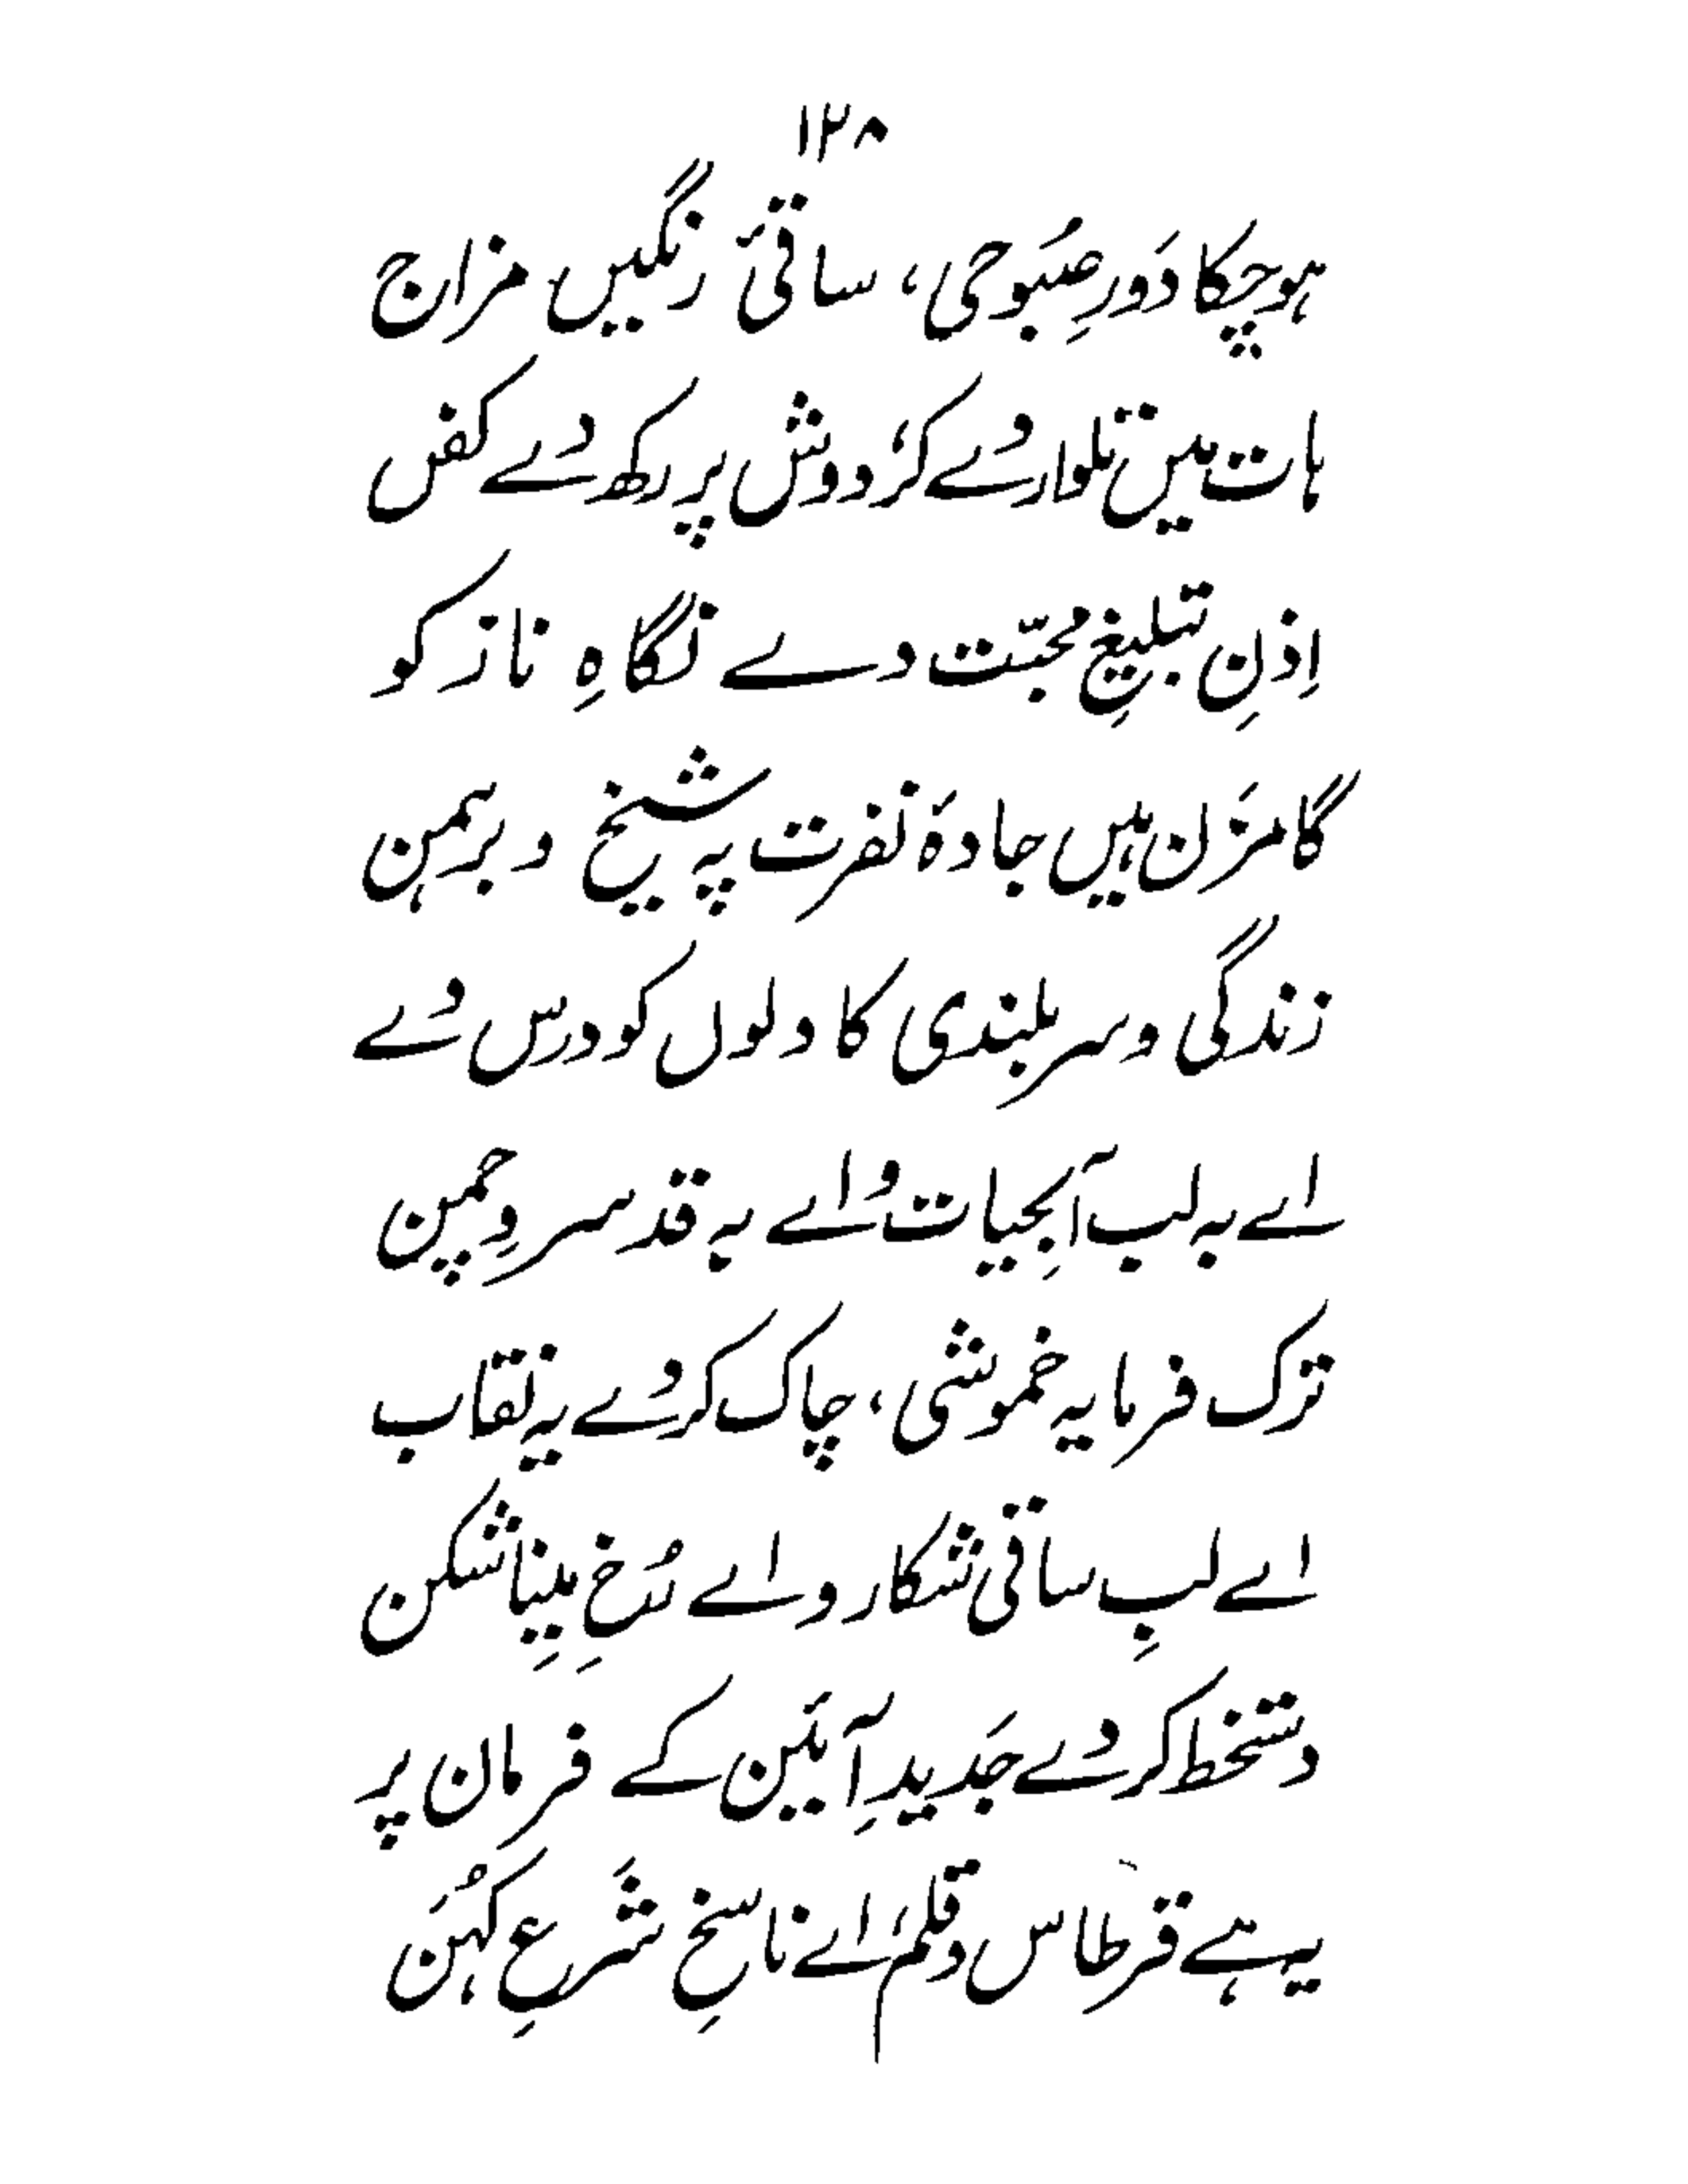 ۱۲۸
ہو چکا دَورِ صبُوحی، ساقیٔ رنگیں مزاج
ہات میں تلوار دے کر، دوش پر رکھ دے کفن
اِذنِ تبلیغِ محبّت دے نگاہِ ناز کو
گامزَن ہیں جادۂ نفرت پہ شیخ و برہمن
زندگی و سربلندی کا دلوں کو درس دے
اے بہ لب آبِحیات و اے بہ قد سروِ چمن
ترک فرما یہ خموشی، چاک کر دے یہ نقاب
اے لبِ ساقی شکار و اے رُخِ مِینا شکن
دستخط کر دے جَدیدِ آئین کے فرمان پر
یہ ہے قرطاس و قلم، اے ناسخِ شَرعِ کُہَن